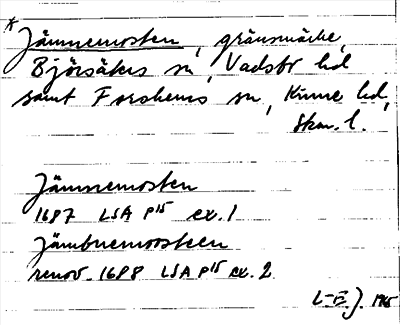 * Jämnemosten, gränsmärke,
Björsäters sn, Vadsbo hd
samt Forshems sn, Kinne hd,
Skar. l.
Jämnemosten
1687 LSA P15 ex. 1
Jämbnemoosteen
renov. 1688 LSA P15 ex. 2
L-E. J.